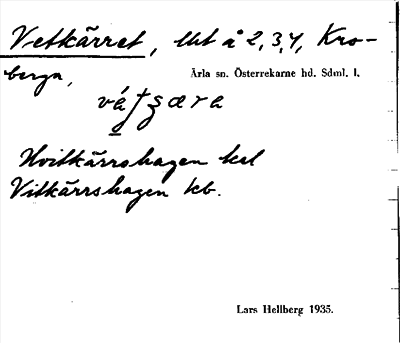 Vetkärret, lht å 2,3,4, Kro-
berga, Ärla sn. Österrekarne hd. Sdml. l.
Hvitkärrshagen
Vitkärrshagen kb.
Lars Hellberg 1935.